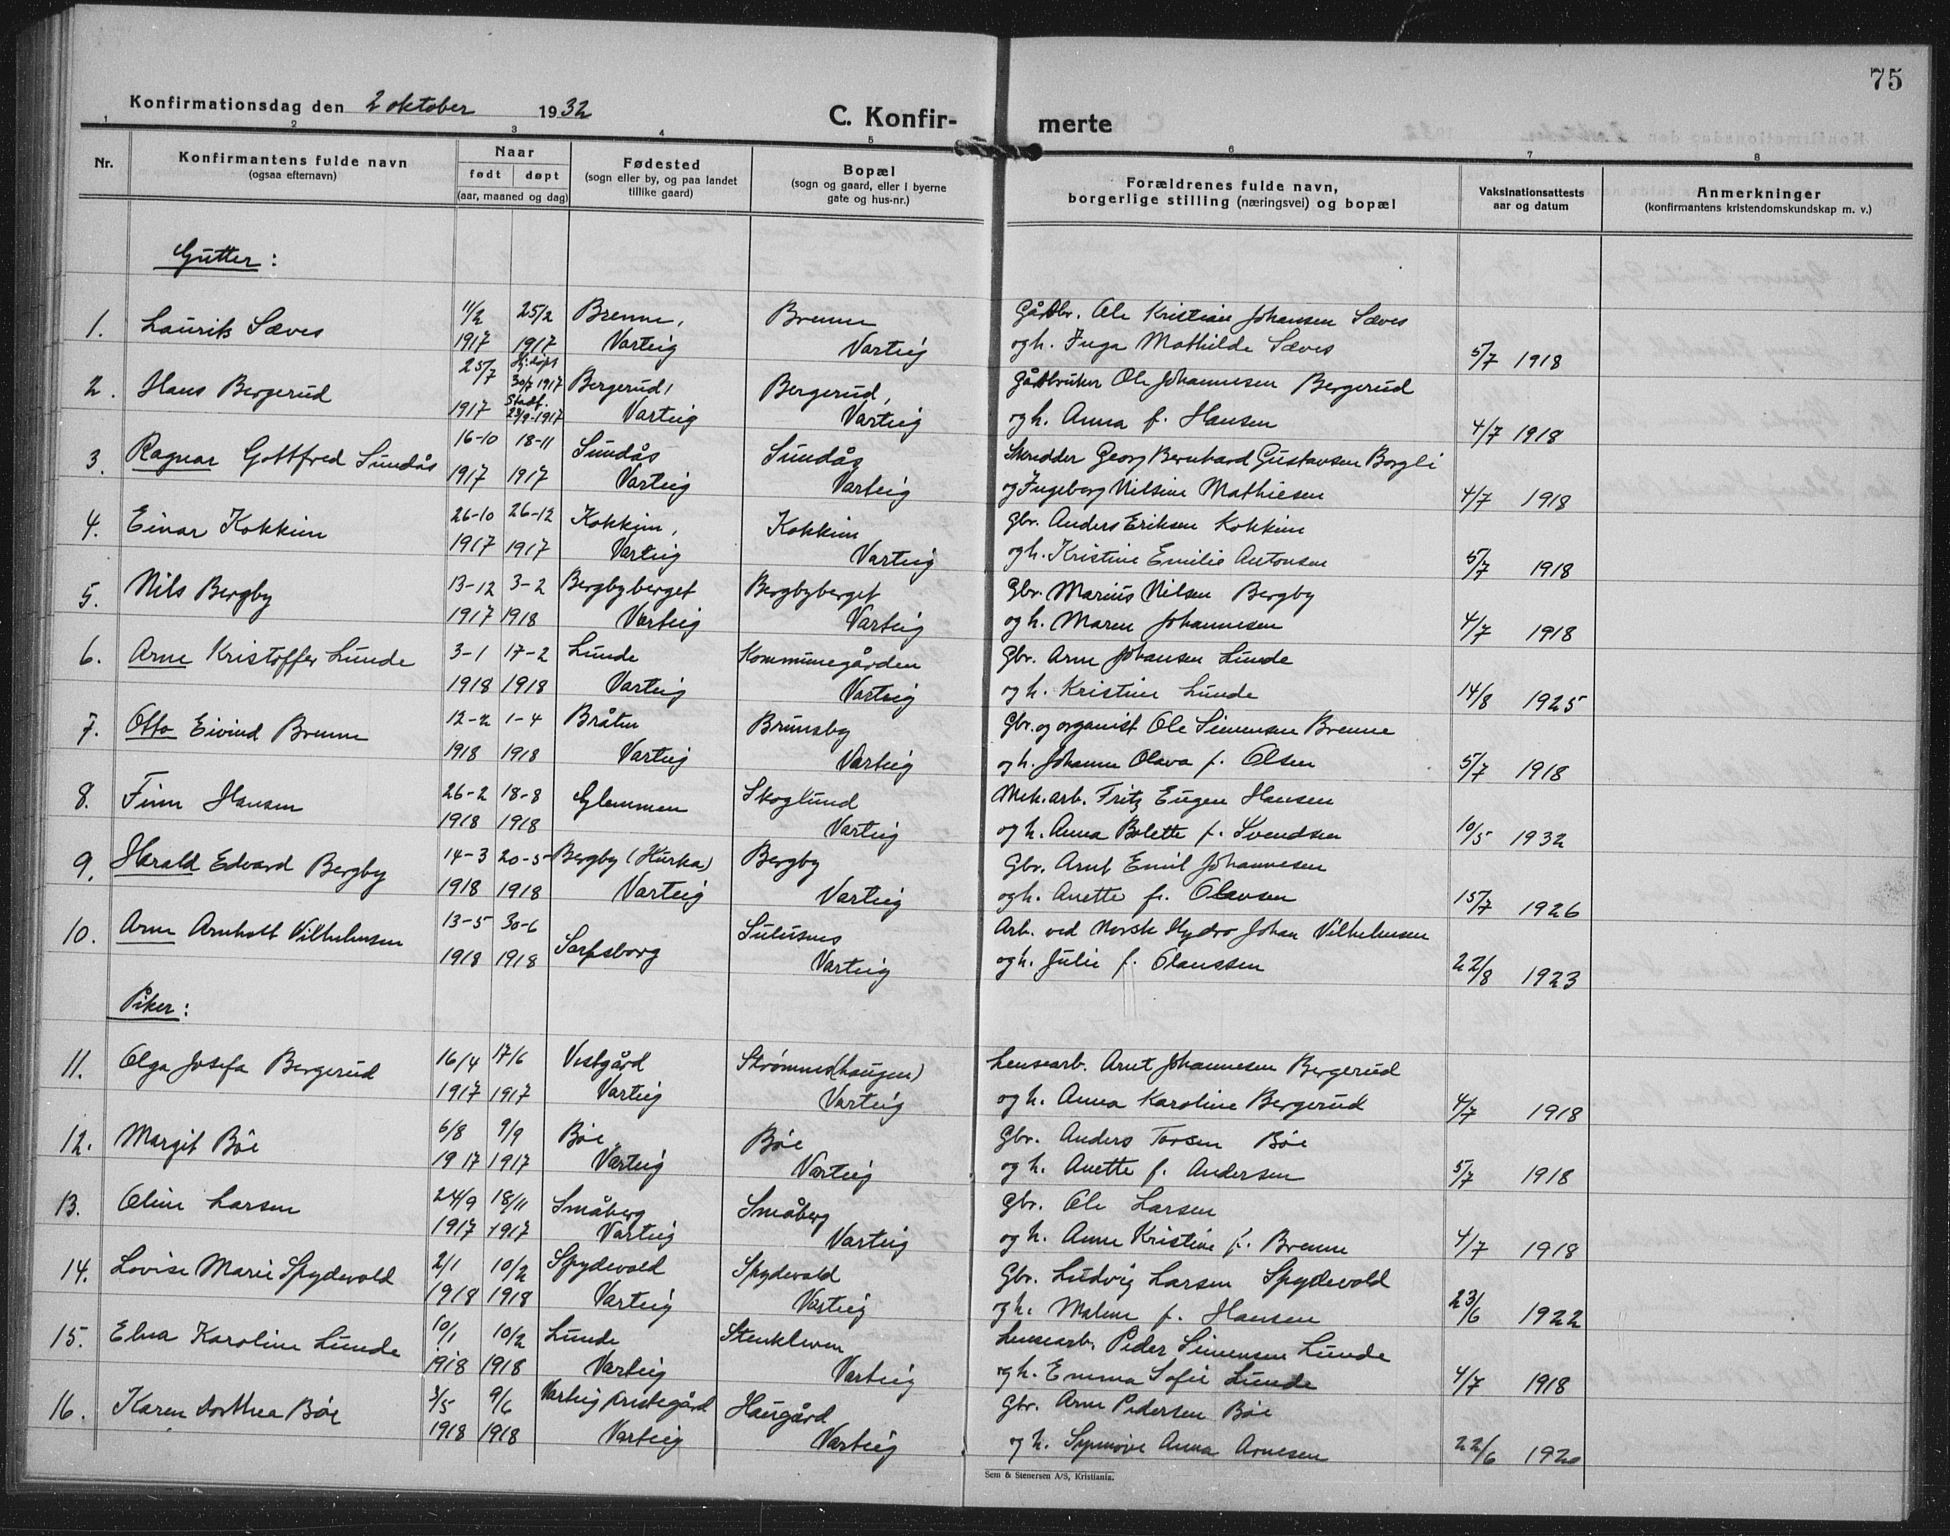 75
Konfirmationsdag den 2 oktober 1932
C. Konfir- merte
1 2 3 4 5 6 7 8
Nr. Konfirmantens fulde navn (ogsaa efternavn) Naar født døpt (aar, maaned og dag) Fødested (sogn eller by, og paa landet tillike gaard) Bopæl (sogn og gaard, eller i byerne gate og hus-nr.) Forældrenes fulde navn, borgerlige stilling (næringsvei) og bopæl Vaksinationsattests aar og datum Anmerkninger (konfirmantens kristendomskundskap m. v.)
Gutter:
1. Laurits Sæves 11/2 25/2 Brenne, Brenne Gårdbr. Ole Kristian Johansen Sæves
1917 1917 Varteig Varteig og h. Inga Mathilde Sæves 5/7 1918
2. Hans Bergerud 25/7 Hj.døpt 30/7 1917 Bergerud, Bergerud, Gårdbruker Ole Johannesen Bergerud
1917 Stadf. 23/9-1917 Varteig Varteig og h. Anna f. Hansen 4/7 1918
3. Ragnar Gottfred Sundås 16-10 18-11 Sundås Sundås Skredder Georg Bernhard Gustavsen Borgli
1917 1917 Varteig Varteig og Ingeborg Nilsine Mathiesen 4/7 1918
4. Einar Kokkim 26-10 26-12 Kokkim, Kokkim Gbr. Anders Eriksen Kokkim
1917 1917 Varteig Varteig og h. Kristine Emilie Antonsen 5/7 1918
5. Nils Bergby 13-12 3-2 Bergbyberget Bergbyberget Gbr. Marius Nilsen Bergby
1917 1918 Varteig Varteig og h. Maren Johannesen 4/7 1918
6. Arne Kristoffer Lunde 3-1 17-2 Lunde Kommunegården Gbr. Arne Johansen Lunde
1918 1918 Varteig Varteig og h. Kristine Lunde 14/8 1925
7. Otto Eivind Brenne 12-2 1-4 Bråten Brunsby Gbr. og organist Ole Simensen Brenne
1918 1918 Varteig Varteig og h. Johanne Olava f. Olsen 5/7 1918
8. Finn Hansen 26-2 18-8 Glemmen Skoglund Mek.arb. Fritz Eugen Hansen
1918 1918 Varteig og h. Anna Bolette f. Svendsen 10/5 1932
9. Harald Edvard Bergby 14-3 20-5 Bergby (Hurka) Bergby Gbr. Arnt Emil Johannesen
1918 1918 Varteig Varteig og h. Anette f. Olavsen 15/7 1926
10. Arne Arnholt Vilhelmsen 13-5 30-6 Sarpsborg Sulusnes Arb. ved Norsk Hydro Johan Vilhelmsen
1918 1918 Varteig og h. Julie f. Olaussen 22/8 1923
Piker:
11. Olga Josefa Bergerud 16/4 17/6 Vestgård Strømnes(haugen) Lensearb. Arnt Johannesen Bergerud
1917 1917 Varteig Varteig og h. Anna Karoline Bergerud 4/7 1918
12. Margit Bøe 6/8 9/9 Bøe, Bøe Gbr. Anders Torsen Bøe
1917 1917 Varteig Varteig og h. Anette f. Andersen 5/7 1918
13. Oline Larsen 24/9 18/11 Småberg Småberg Gbr. Ole Larsen
1917 1917 Varteig Varteig og h. Anne Kristine f. Brenne 4/7 1918
14. Lovise Marie Spydevold 2/1 10/2 Spydevold Spydevold Gbr. Ludvig Larsen Spydevold
1918 1918 Varteig Varteig og h. Malene f. Hansen 23/6 1922
15. Elna Karoline Lunde 10/1 10/2 Lunde Stenkleven Lensearb. Peder Simensen Lunde
1918 1918 Varteig Varteig og h. Emma Sofie Lunde 4/7 1918
16. Karen Dorthea Bøe 3/5 9/6 Varteig Prestegård Haugård Gbr. Arne Pedersen Bøe
1918 1918 Varteig Varteig og h. Synnøve Anna Arnesen 22/6 1920
Sem & Stenersen A/S, Kristiania.